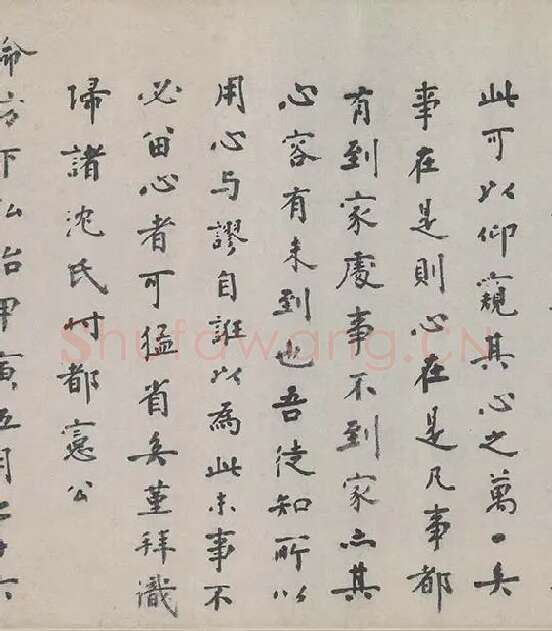 此可以仰窺其心之萬一矣
事在是則心在是凡事都
有到家處事不到家亦其
心容有未到也吾徒知所以
用心与謬自誑以為此末事不
必留心者可猛省矣堇拜識
歸諸沈氏付都憲公
命方下弘治甲寅五月
Shufawang.CN